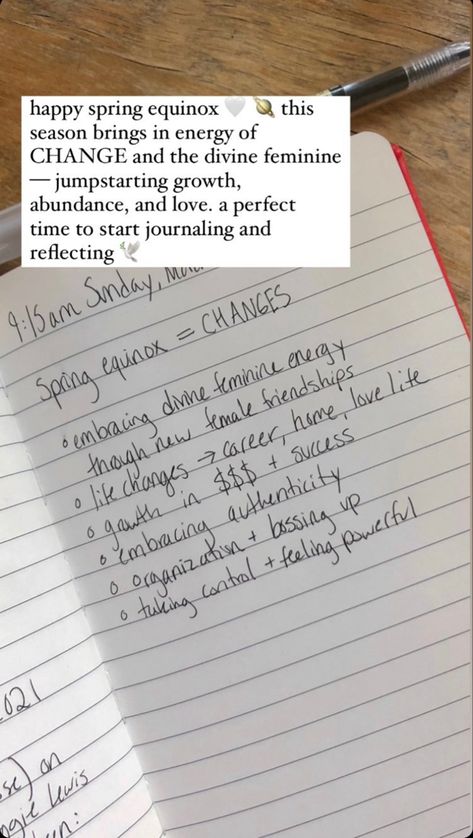 happy spring equinox 🤍 🪐 this
season brings in energy of
CHANGE and the divine feminine
— jumpstarting growth,
abundance, and love. a perfect
time to start journaling and
reflecting 🕊️
9:15am Sunday,
Spring equinox = CHANGES
o embracing divine feminine energy
though new female friendships
o life changes → career, home, love life
o growth in $$$ + success
o embracing authenticity
o organization + bossing up
o taking control + feeling powerful
on
Lewis